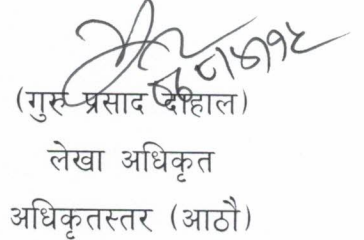 (गुरु प्रसाद दाहाल)
लेखा अधिकृत
अधिकृतस्तर (आठौ)